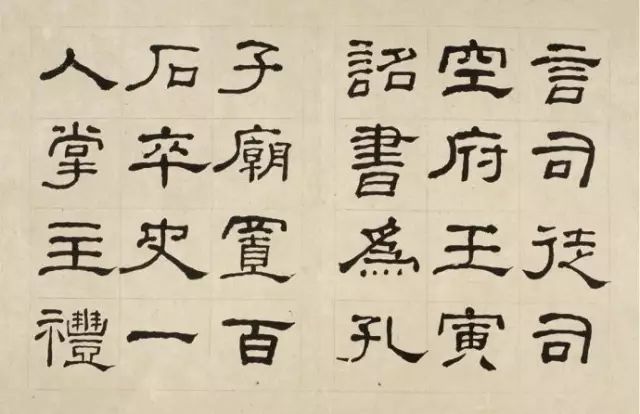 言司徒司
空府王寅
詔書為孔
子廟置百
石卒史一
人掌主禮